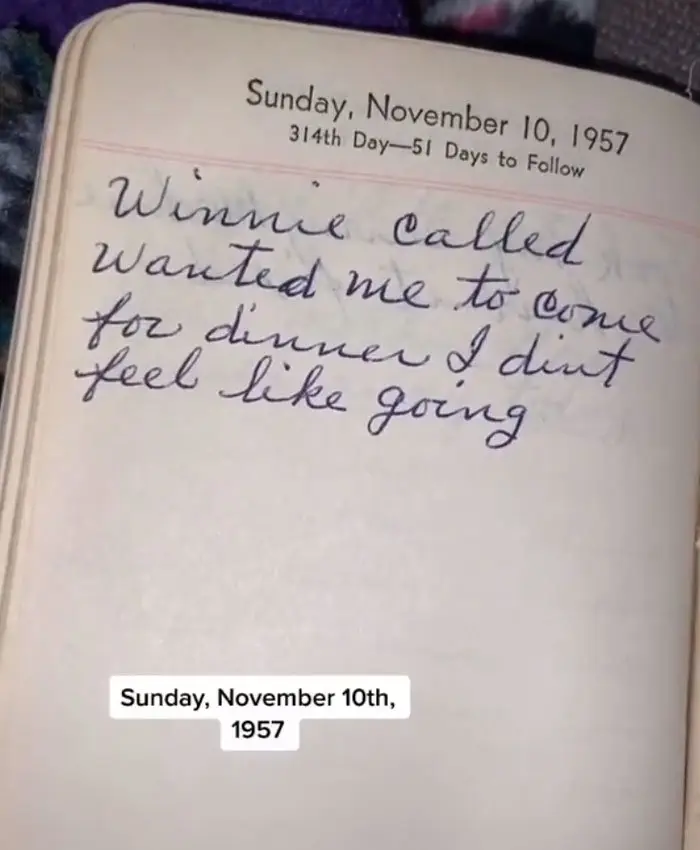 Sunday, November 10, 1957
314th Day—51 Days to Follow
Winnie called
wanted me to come
for dinner I dint
feel like going
Sunday, November 10th,
1957